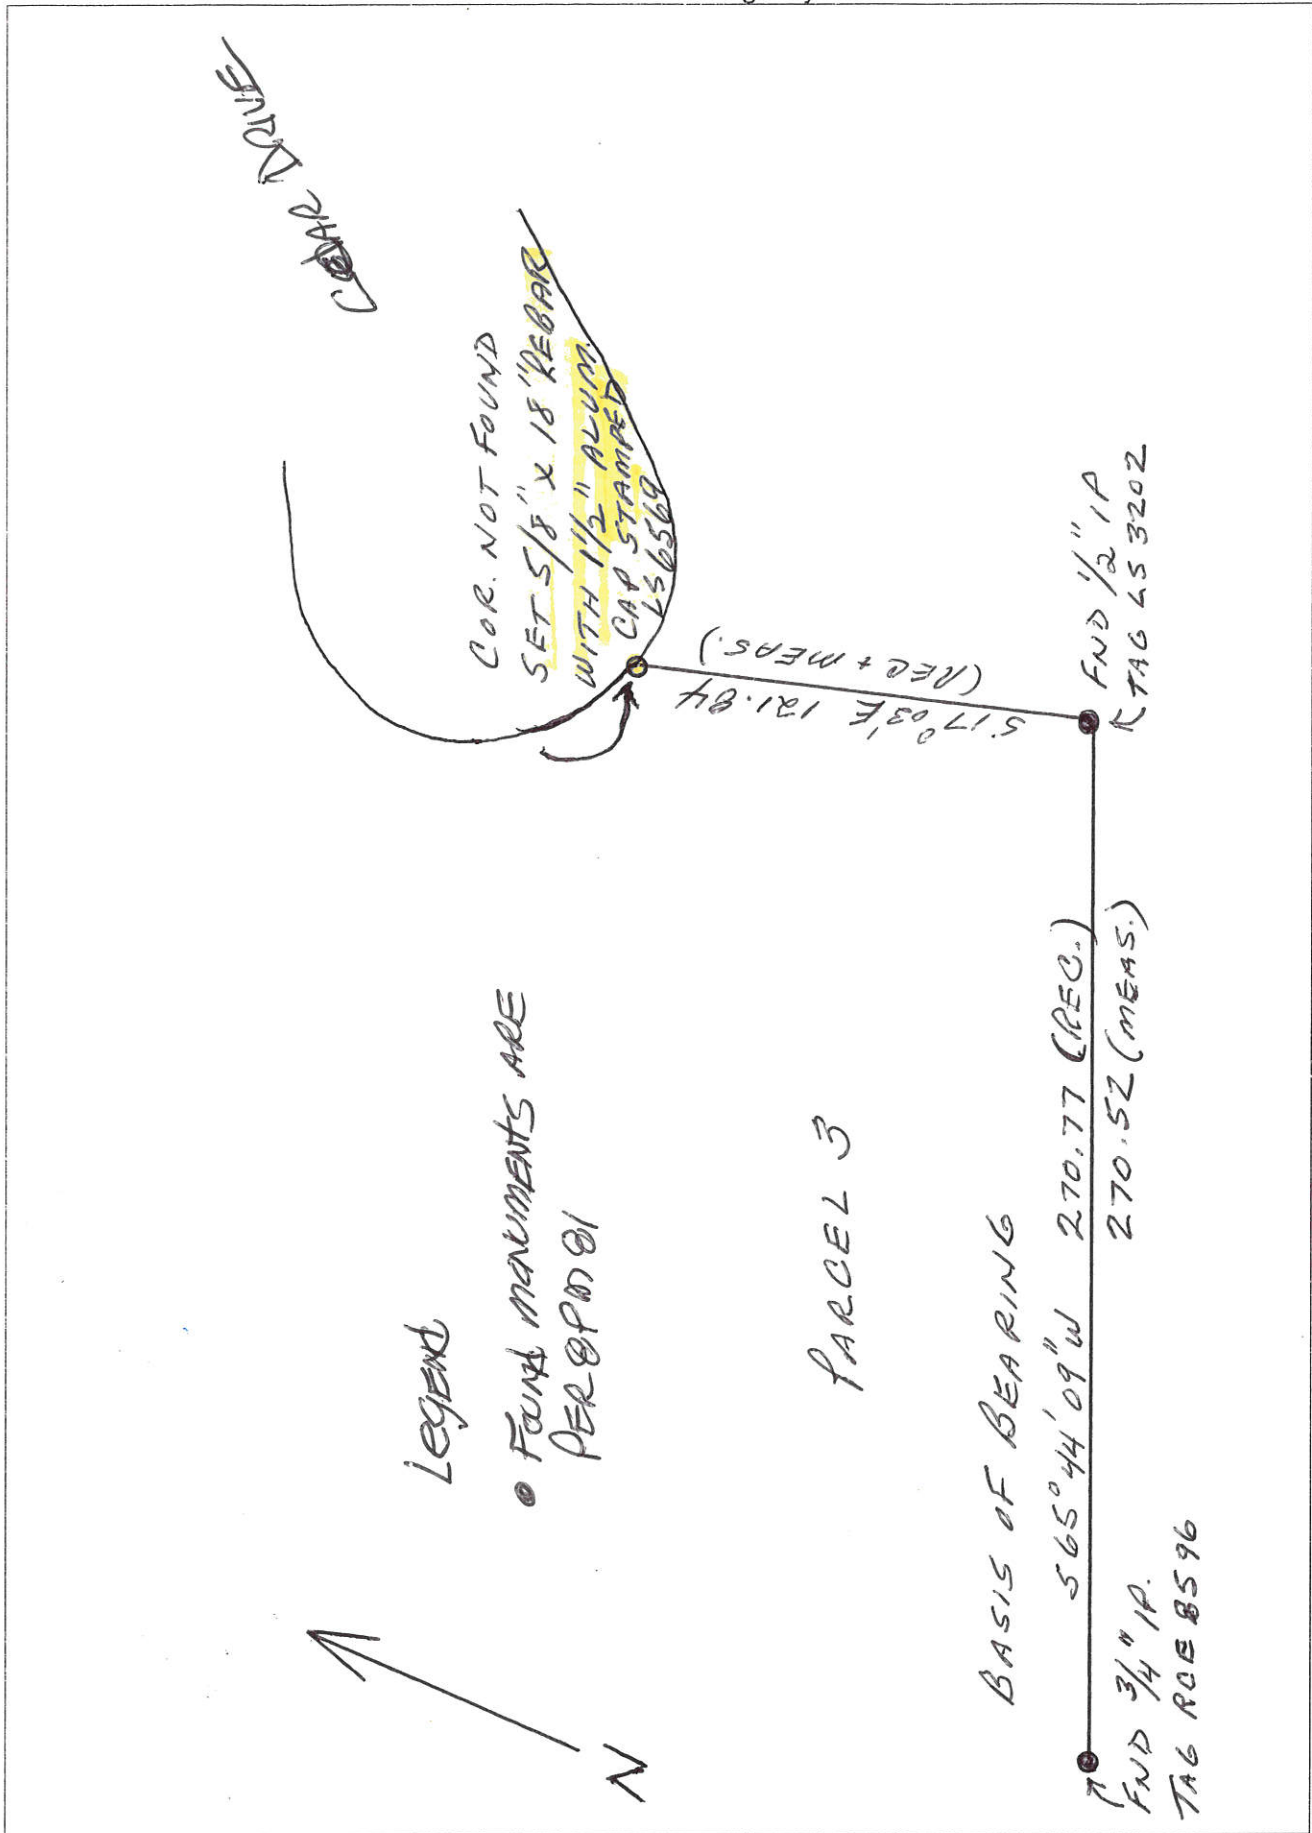 CEDAR DRIVE
COR. NOT FOUND
SET 5/8" X 18" REBAR
WITH 1 1/2" ALUM.
CAP STAMPED
LS 6569
S 17° 03' E 121.84
(REC + MEAS.)
FND 1/2" IP
TAG LS 3202
Legend
Found monuments ARE
PER 8 PM 81
PARCEL 3
BASIS OF BEARING
S 65° 44' 09" W 270.77 (REC.)
270.52 (MEAS.)
N
FND 3/4" IP.
TAG RCE 8596